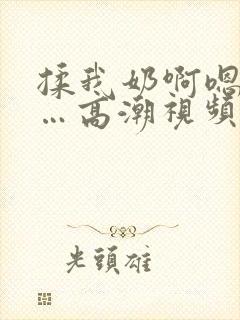 揉我奶啊嗯
…高潮視頻
光頭雄